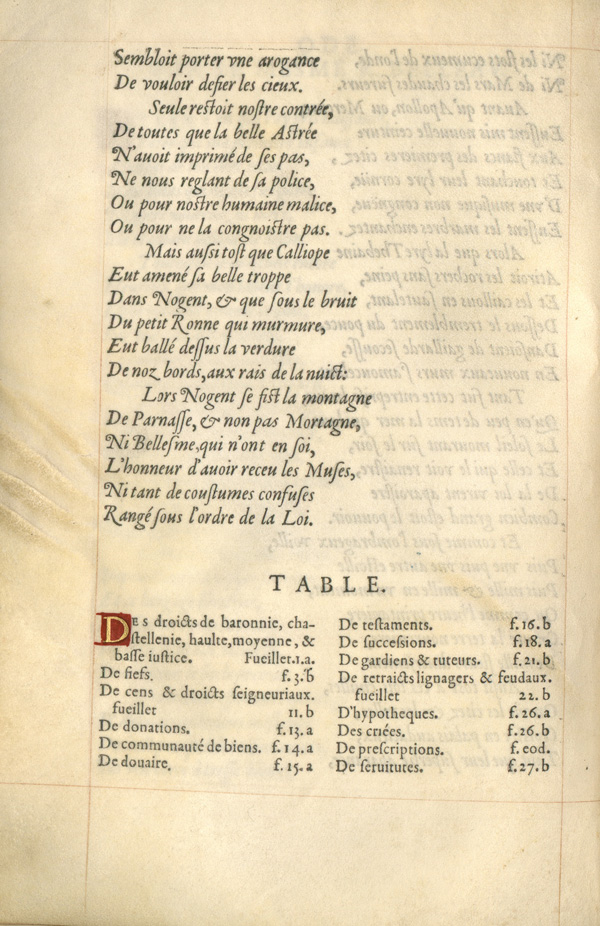 Sembloit porter vne arogance
De vouloir defier les cieux.
Seule restoit nostre contrée,
De toutes que la belle Astrée
N'auoit imprimé de ses pas,
Ne nous reglant de sa police,
Ou pour nostre humaine malice,
Ou pour ne la congnoistre pas.
Mais aussi tost que Calliope
Eut amené sa belle troppe
Dans Nogent, & que sous le bruit
Du petit Ronne qui murmure,
Eut ballé dessus la verdure
De noz bords, aux rais de la nuict:
Lors Nogent se fist la montagne
De Parnasse, & non pas Mortagne,
Ni Bellesme, qui n'ont en soi,
L'honneur d'auoir receu les Muses,
Ni tant de coustumes confuses
Rangé sous l'ordre de la Loi.
TABLE.
DES droicts de baronnie, cha-
stellenie, haulte, moyenne, &
basse iustice. Fueillet.1.a.
De fiefs. f.3.b
De cens & droicts seigneuriaux.
fueillet 11.b
De donations. f.13.a
De communauté de biens. f.14.a
De douaire. f.15.a
De testaments. f.16.b
De successions. f.18.a
De gardiens & tuteurs. f.21.b
De retraicts lignagers & feudaux.
fueillet 22.b
D'hypotheques. f.26.a
Des criées. f.26.b
De prescriptions. f.eod.
De seruitutes. f.27.b